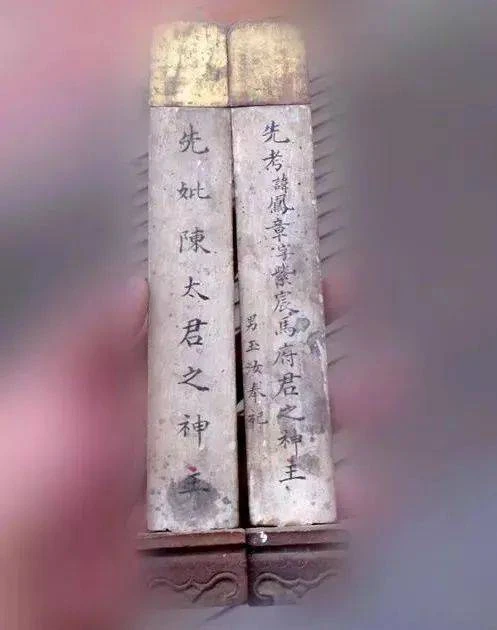 先考諱鳳章字紫宸馬府君之神主
男玉汝奉祀
先妣陳太君之神主